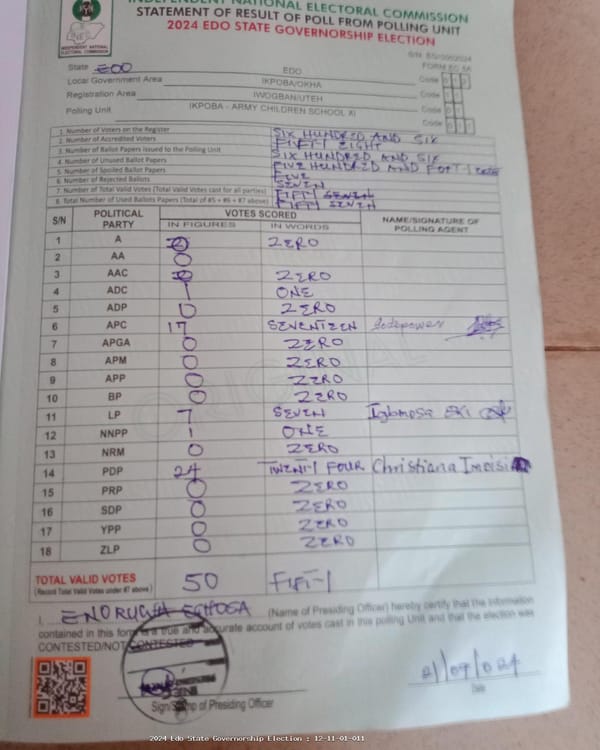 INDEPENDENT NATIONAL ELECTORAL COMMISSION
STATEMENT OF RESULT OF POLL FROM POLLING UNIT
2024 EDO STATE GOVERNORSHIP ELECTION
INEC
INDEPENDENT NATIONAL ELECTORAL COMMISSION
FORM EC 8A
State EDO EDO Code
Local Government Area IKPOBA/OKHA Code
Registration Area IWOGBAN/UTEH Code
Polling Unit IKPOBA - ARMY CHILDREN SCHOOL XI Code
1. Number of Voters on the Register SIX HUNDRED AND SIX
2. Number of Accredited Voters FIFTY EIGHT
3. Number of Ballot Papers issued to the Polling Unit SIX HUNDRED AND SIX
4. Number of Unused Ballot Papers FIVE HUNDRED AND
5. Number of Spoiled Ballot Papers FIVE
6. Number of Rejected Ballots SEVEN
7. Number of Total Valid Votes (Total Valid Votes cast for all parties) FIFTY
8. Total Number of Used Ballots Papers (Total of #5 + #6 + #7 above) FIFTY SEVEN
S/N POLITICAL PARTY VOTES SCORED NAME/SIGNATURE OF POLLING AGENT
IN FIGURES IN WORDS
1 A 0 ZERO
2 AA 0
3 AAC 0 ZERO
4 ADC 1 ONE
5 ADP 0 ZERO
6 APC 17 SEVENTEEN
7 APGA 0 ZERO
8 APM 0 ZERO
9 APP 0 ZERO
10 BP 0 ZERO
11 LP 7 SEVEN
12 NNPP 1 ONE
13 NRM 0 ZERO
14 PDP 24 TWENTY FOUR Christiana
15 PRP 0 ZERO
16 SDP 0 ZERO
17 YPP 0 ZERO
18 ZLP 0 ZERO
TOTAL VALID VOTES 50 FIFTY
(Record Total Valid Votes under #7 above)
I, EGHOSA (Name of Presiding Officer) hereby certify that the information
contained in this form is a true and accurate account of votes cast in this polling Unit and that the election was
CONTESTED/NOT CONTESTED
Sign/Stamp of Presiding Officer
Date
2024 Edo State Governorship Election : 12-11-01-011